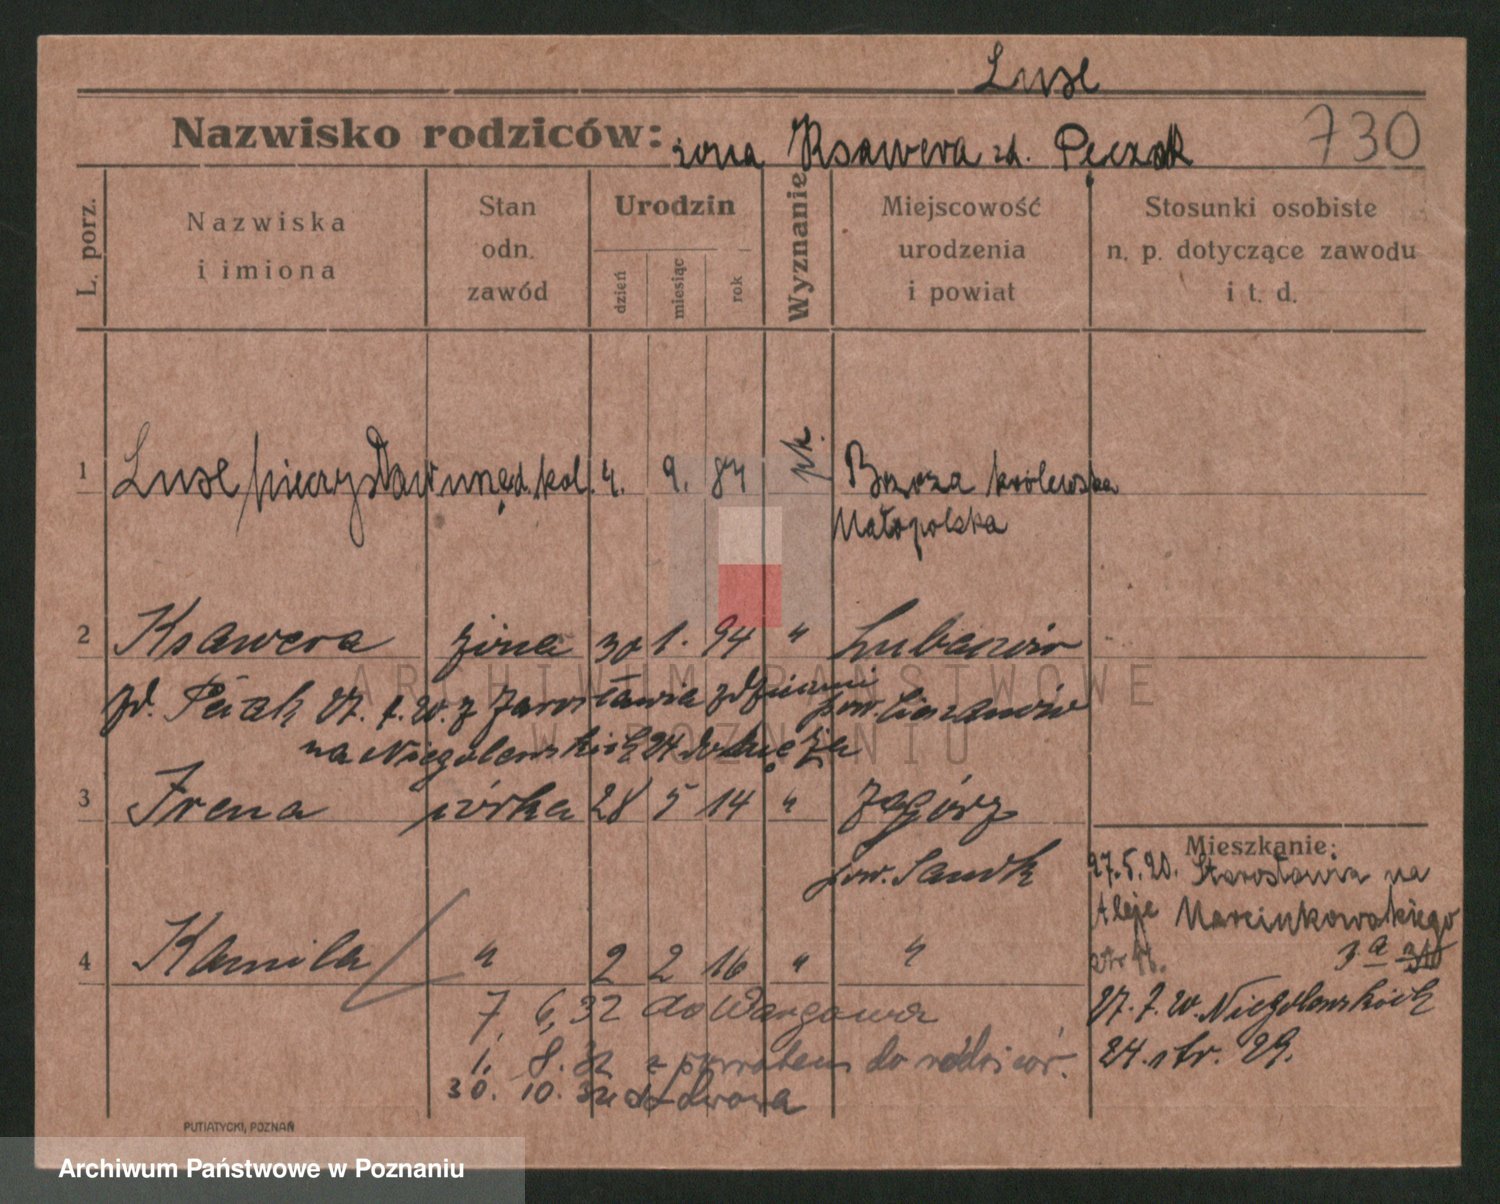 Luse
Nazwisko rodziców: żona Ksawera zd. Peczak
730
L. porz.
Nazwiska
i imiona
Stan
odn.
zawód
Urodzin
dzień
miesiąc
rok
Wyznanie
Miejscowość
urodzenia
i powiat
Stosunki osobiste
n. p. dotyczące zawodu
i t. d.
1 Luse Mieczysław urzęd. kol. 4. 9. 84 rk. Brzoza królewska
Małopolska
2 Ksawera żona 30 1. 94 " Lubaczów
zd. Peczak 27. 7. 20. z Jarosławia z dziećmi pow. Cieszanów
na Niegolewskich 24 do męża
3 Irena córka 28 5 14 " Zagórz
pow. Sanok
Mieszkanie:
27.5.20. Starostawia na
Aleje Marcinkowskiego
3a
4 Kamila " 2 2 16 " "
27. 7. 20. Niegolewskich
24. str. 29.
7. 6. 32 do Wargowa
1. 8. 32 z powrotem do rodziców.
30. 10. 32 do Lwowa
PUTIATYCKI, POZNAŃ
ARCHIWUM PAŃSTWOWE
W POZNANIU
Archiwum Państwowe w Poznaniu